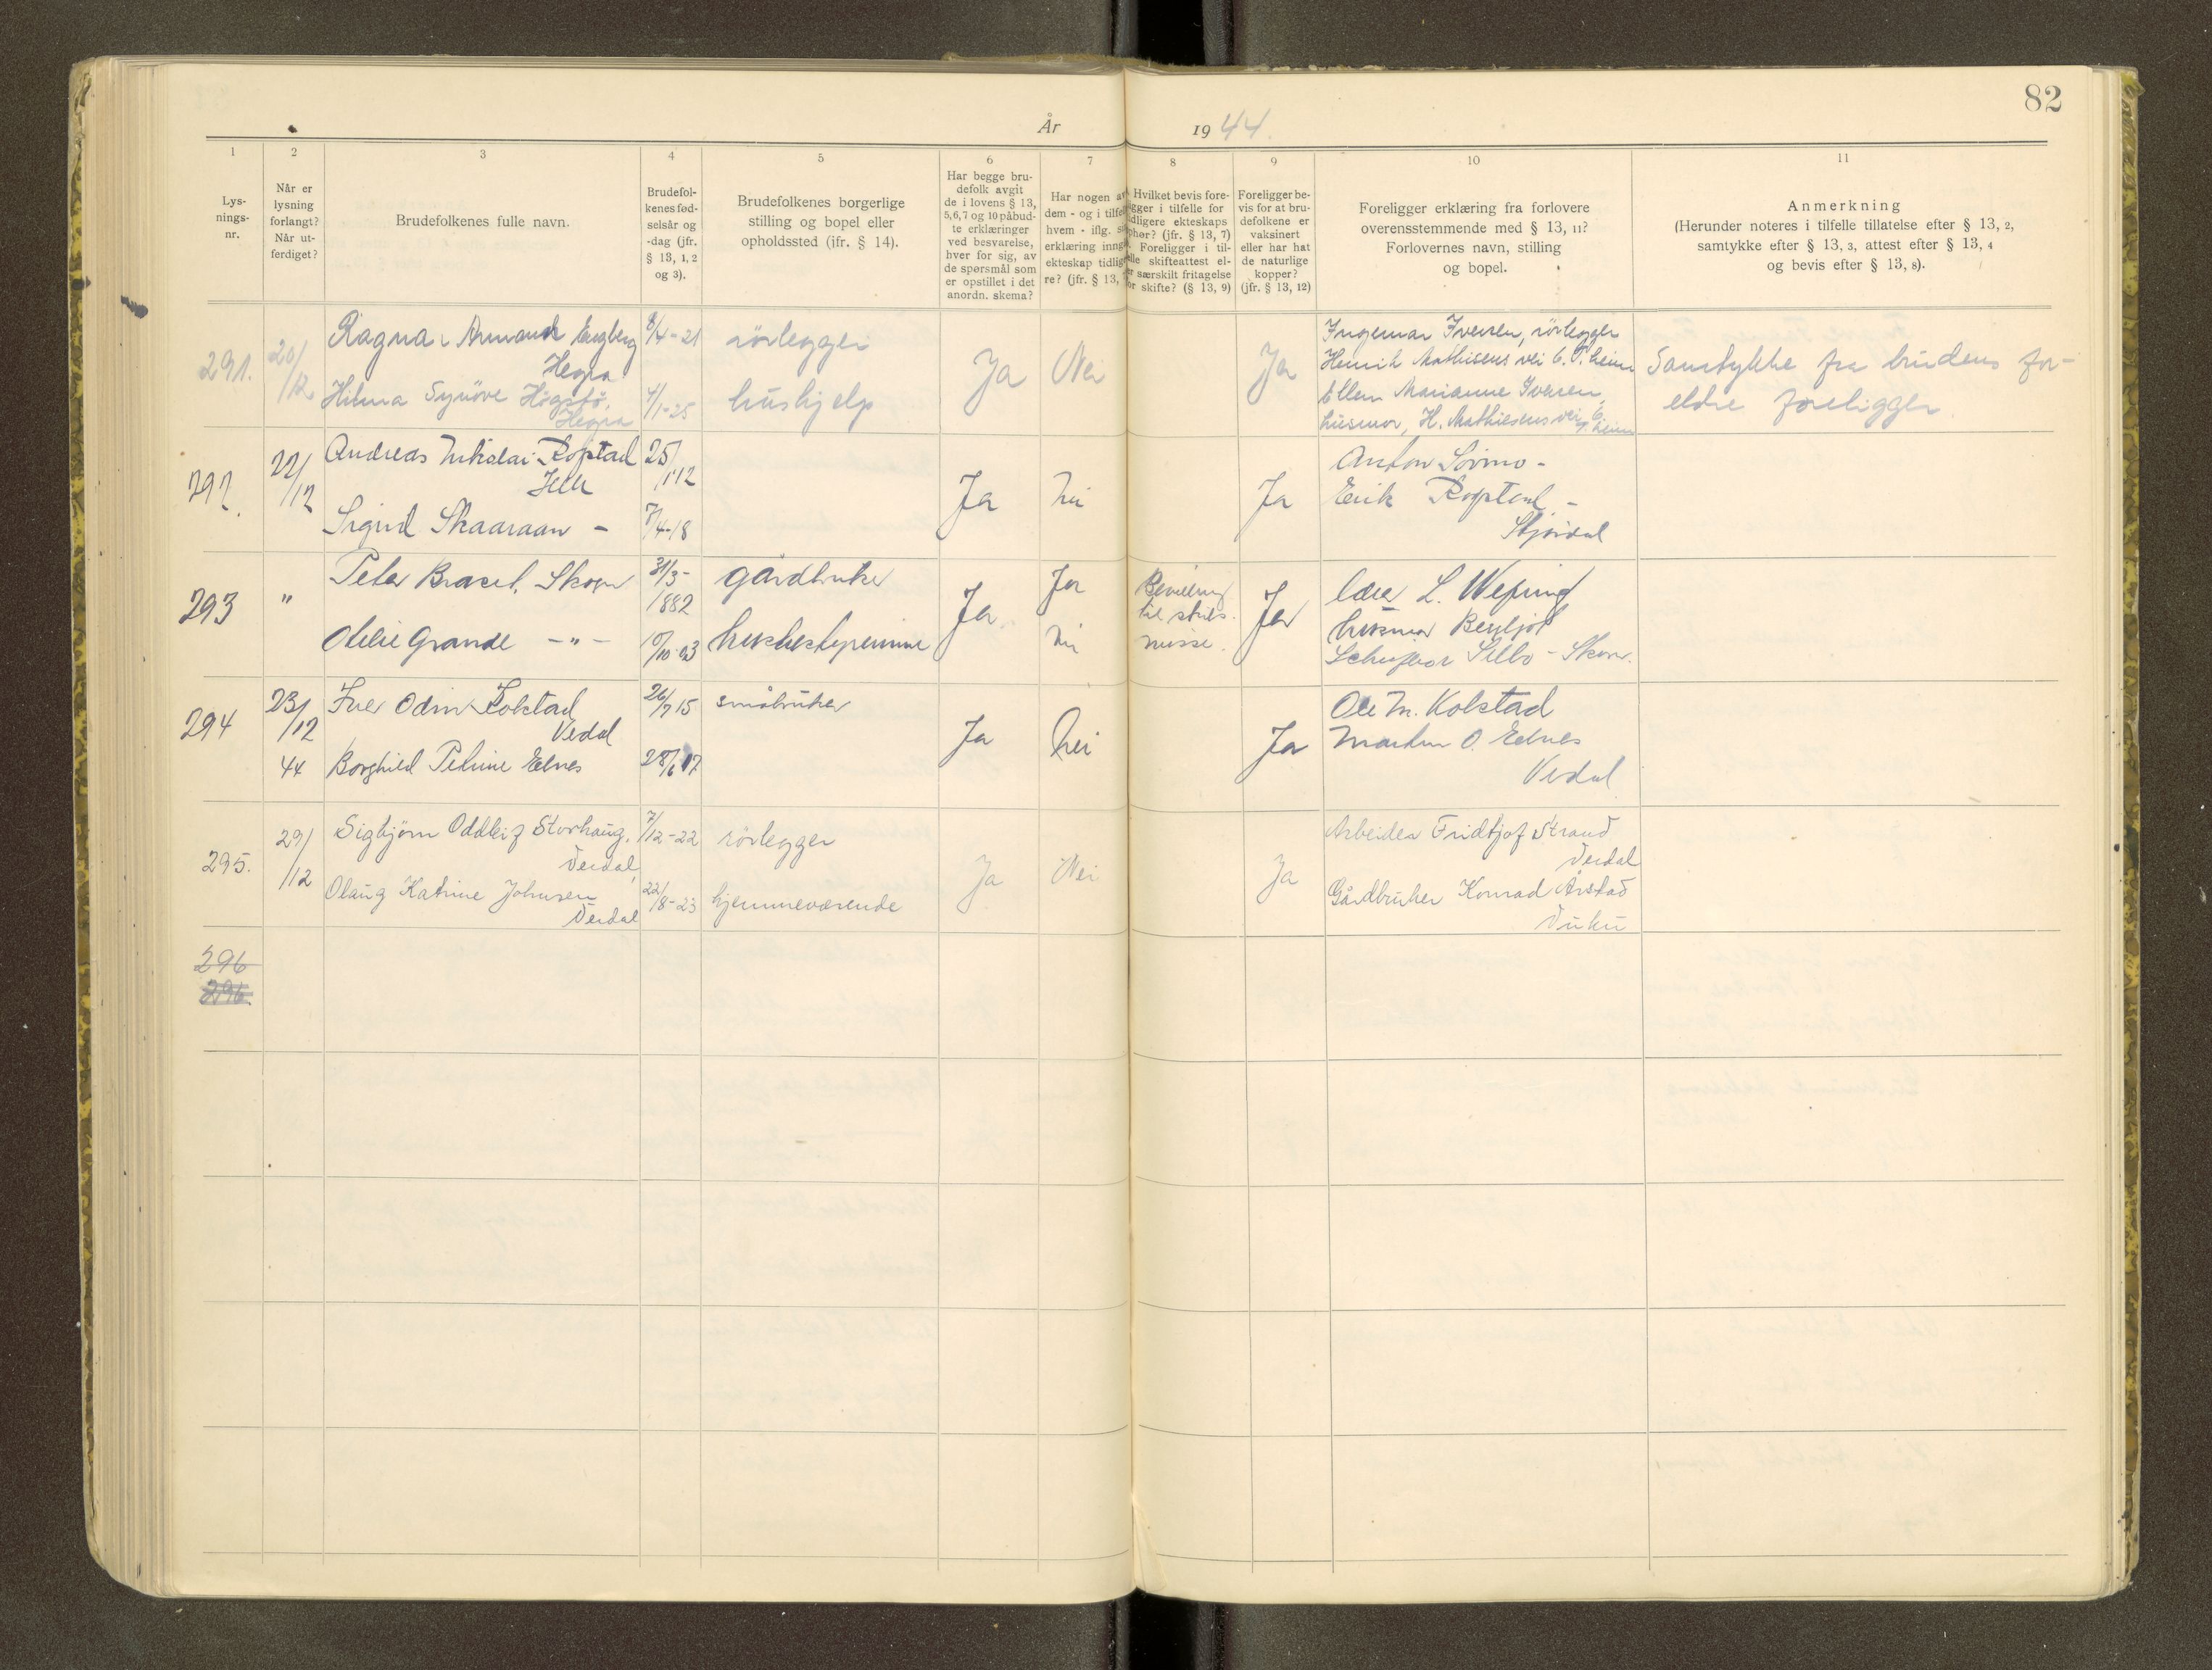 82
År 1944.
1 2 3 4 5 6 7 8 9 10 11
Lys-
nings-
nr.
Når er
lysning
forlangt?
Når ut-
ferdiget?
Brudefolkenes fulle navn.
Brudefol-
kenes fød-
selsår og
-dag (jfr.
§ 13, 1, 2
og 3).
Brudefolkenes borgerlige
stilling og bopel eller
opholdssted (ifr. § 14).
Har begge bru-
defolk avgit
de i lovens § 13,
5, 6, 7 og 10 påbud-
te erklæringer
ved besvarelse,
hver for sig, av
de spørsmål som
er opstillet i det
anordn. skema?
Har nogen av
dem - og i tilfelle
hvem - iflg. si
erklæring inng
ekteskap tidlige
re? (jfr. § 13,
Hvilket bevis fore-
ligger i tilfelle for
tidligere ekteskaps
ophør? (jfr. § 13, 7)
Foreligger i til-
felle skifteattest el-
er særskilt fritagelse
for skifte? (§ 13, 9)
Foreligger be-
vis for at bru-
defolkene er
vaksinert
eller har hat
de naturlige
kopper?
(jfr. § 13, 12)
Foreligger erklæring fra forlovere
overensstemmende med § 13, 11?
Forlovernes navn, stilling
og bopel.
Anmerkning
(Herunder noteres i tilfelle tillatelse efter § 13, 2,
samtykke efter § 13, 3, attest efter § 13, 4
og bevis efter § 13, 8).
291. 20/12
Engberg
Hegra
8/4-21 rörlegger
Synöve
Hegra
4/1-25 hushjelp
Ja Nei Ja
Ingemar Iversen, rörlegger
Henrik Mathisens vei 6. T.heim
Ellen Marianne Iversen,
husmor, H. Mathisens vei 6
T.heim
Samtykke fra brudens for-
eldre foreligger.
292. 22/12
Andreas Nikolai Ropstad
25/1 12
Sigrid Skaaraan -
7/4-18
Ja nei Ja
Anton -
Erik Ropstad -
Stjørdal
293 "
Peter Skogn
31/3-
1882
gårdbruker
Otelie Grande - " -
/10-03
Ja Ja
nei
Bevilling
til skils-
misse.
Ja
L.
husmor Bergljot
- Skogn.
294 23/12
44
Iver Odin Kolstad
Verdal
26/7 15 småbruker
Borghild Petrine Eklnes
28/6 17
Ja nei Ja
Ole M. Kolstad
O.
Verdal
295. 29/12
Sigbjörn Oddleif Storhaug,
Verdal,
7/12-22 rörlegger
Olaug Katrine Johnsen
Verdal
22/8-23 hjemmeværende
Ja Nei Ja
Arbeider Fridtjof Strand
Verdal
Gårdbruker Konrad Årstad
Vuku
296
296.